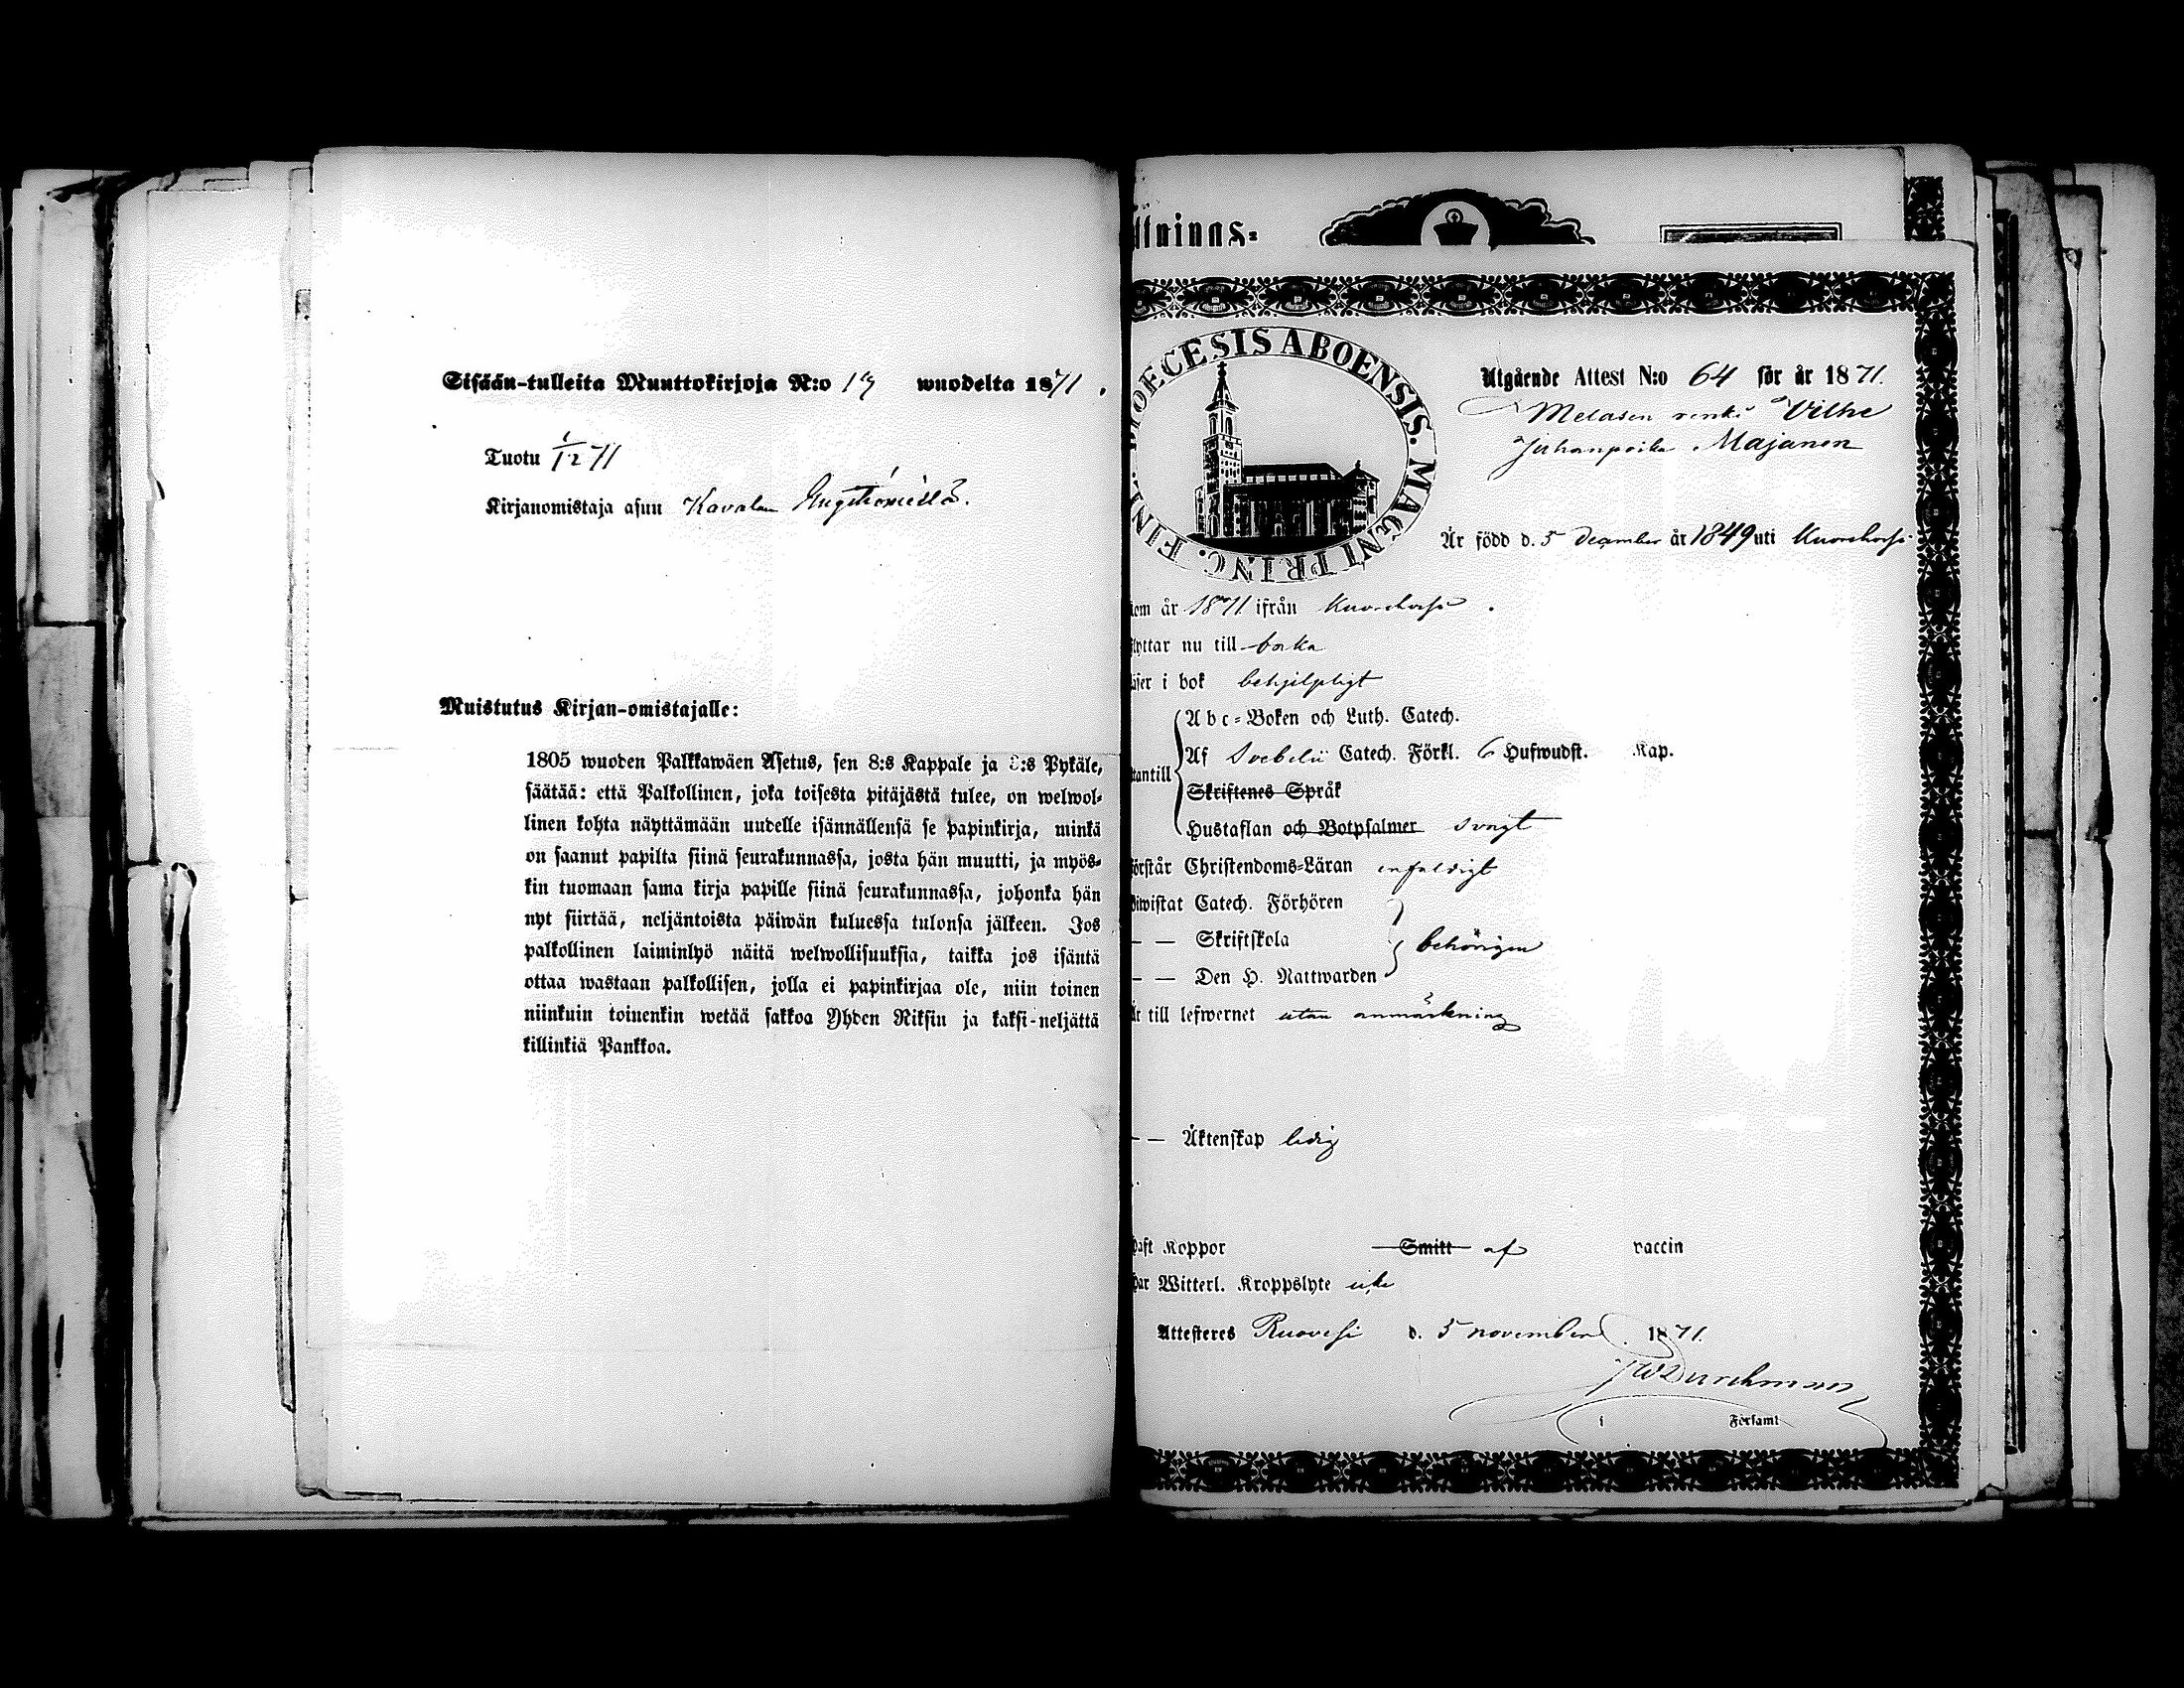 Sisään-tulleita Muuttokirjoja N:o 19 wuodelta 1871.
Tuotu 1/12 71
Kirjanomistaja asuu Kavalan
Muistutus Kirjan-omistajalle:
1805 wuoden Palkkawäen Asetus, sen 8:s Kappale ja 3:s Pykäle,
säätää: että Palkollinen, joka toisesta pitäjästä tulee, on welwol-
linen kohta näyttämään uudelle isännällensä se papinkirja, minkä
on saanut papilta siinä seurakunnassa, josta hän muutti, ja myös-
kin tuomaan sama kirja papille siinä seurakunnassa, johonka hän
nyt siirtää, neljäntoista päiwän kuluessa tulonsa jälkeen. Jos
palkollinen laiminlyö näitä welwollisuuksia, taikka jos isäntä
ottaa wastaan palkollisen, jolla ei papinkirjaa ole, niin toinen
niinkuin toinenkin wetää sakkoa Yhden Riksin ja kaksi-neljättä
killinkiä Pankkoa.
ttnings-
DIOECESIS ABOENSIS. MAGNI PRINC. FINL.
Utgående Attest N:o 64 för år 1871.
Melasen renki Vilhe
Juhanpoika Majanen
Är född d. 5 december år 1849 uti
kom år 1871 ifrån
flyttar nu till
läser i bok behjelpligt
utantill
Abc-Boken och Luth. Catech.
Af Svebelii Catech. Förkl. 6 Hufwudst. Kap.
Skriftenes Språk
Hustaflan och Botpsalmer svagt
förstår Christendoms-Läran enfaldigt
biwistat Catech. Förhören
— — Skriftskola behörigen
— — Den H. Nattwarden
Är till lefwernet utan anmärkning
— — Äktenskap ledig
haft Koppor Smitt af vaccin
har Witterl. Kroppslyte icke
Attesteres Ruovesi d. 5 november 1871.
JW Durchman
i Församl